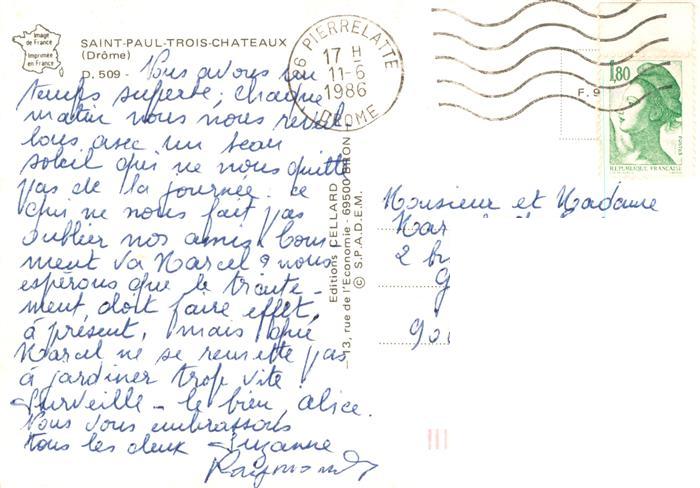 Image
de France
Imprimée
en France
SAINT-PAUL-TROIS-CHATEAUX
(Drôme)
D. 509 -
Nous avons un
temps superbe, chaque
matin nous nous réveil-
lons avec un beau
soleil qui ne nous quitte
pas de la journée. ce
qui ne nous fait pas
oublier nos amis. Com-
ment va Marcel ? nous
espérons que le traite-
ment, doit faire effet,
à présent, mais que
Marcel ne se remette pas
à jardiner trop vite !
Surveille-le bien, Alice.
Nous vous embrassons
tous les deux Suzanne
Raymond
Editions CELLARD
13, rue de l'Economie - 69500 BRON
© S.P.A.D.E.M.
26 PIERRELATTE
17 H
11-6
1986
DROME
F. 9
1,80
POSTES
REPUBLIQUE FRANÇAISE
Monsieur et Madame
Mar
2
G
90